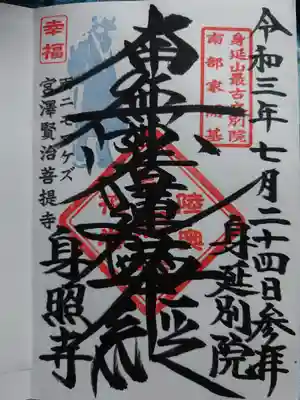 令和三年七月二十四日参拝
身延山最古之別院
南部家開基
身延別院
南無妙法蓮華経
陸奥
幸福
雨ニモマケズ
宮澤賢治菩提寺
身照寺